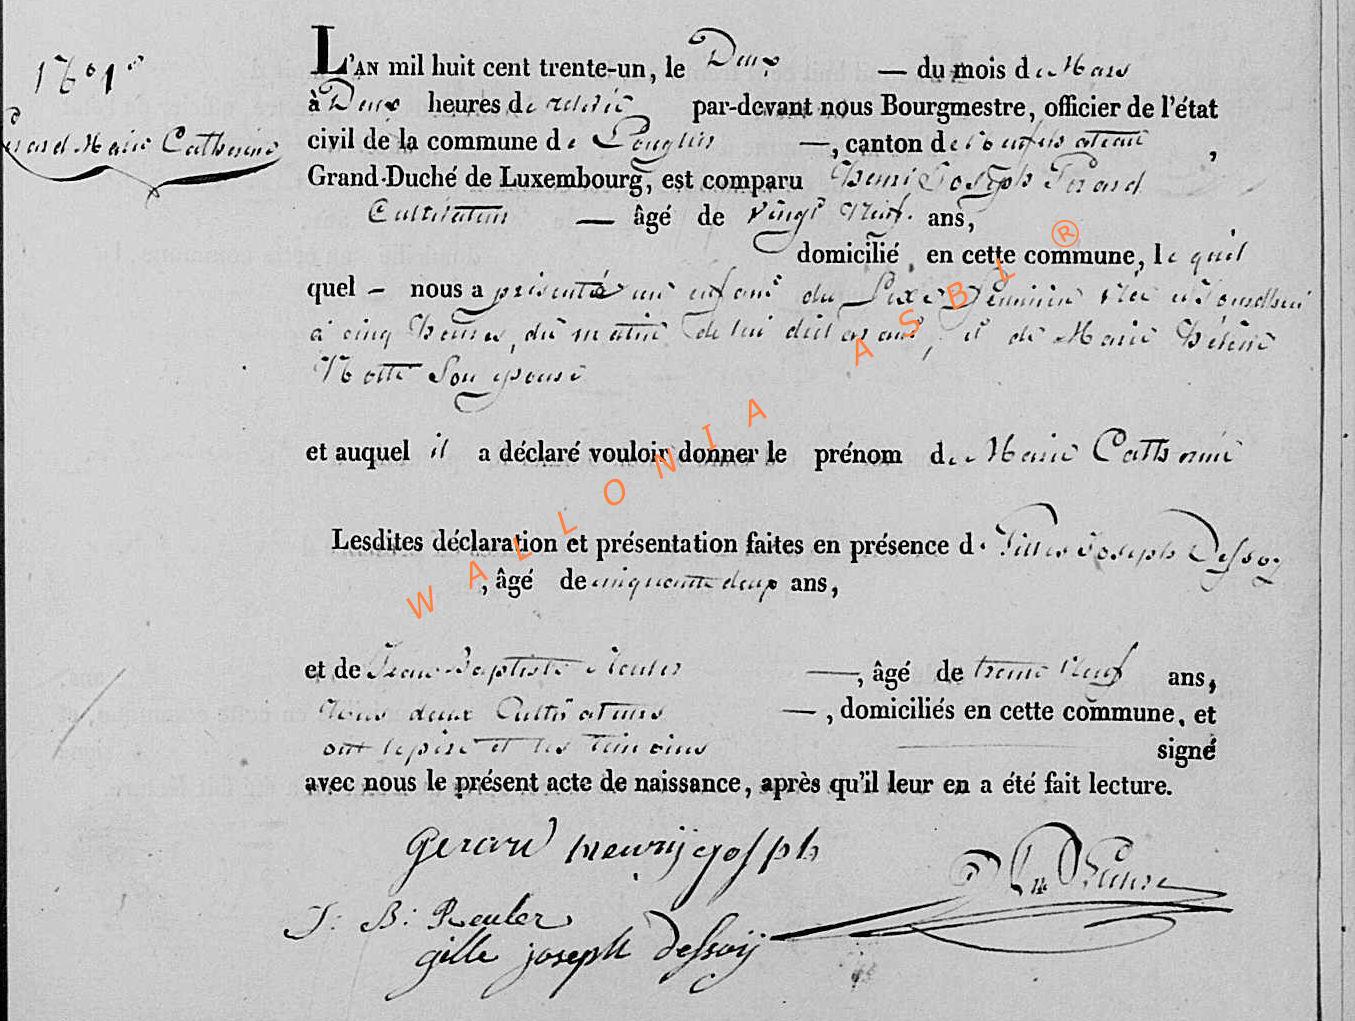 L'AN mil huit cent trente-un, le Deux — du mois de Mars
à Deux heures de relevée par-devant nous Bourgmestre, officier de l'état
Gerard Marie Catherine
civil de la commune de Longlier —, canton de Neufchateau ,
Grand-Duché de Luxembourg, est comparu Henri Joseph Gerard
Cultivateur — âgé de Vingt Neuf ans,
domicilié en cette commune, le quel
quel – nous a présenté un enfant du Sexe féminin Née aujourdhui
à cinq heures du matin de lui déclarant, et de Marie Hélène
Notte Son épouse
et auquel il a déclaré vouloir donner le prénom de Marie Catherine
Lesdites déclaration et présentation faites en présence de Gilles Joseph Dessoy
, âgé de cinquante deux ans,
et de Jean Baptiste Reuler —, âgé de trente Neuf ans,
Tous deux Cultivateurs — , domiciliés en cette commune, et
ont le père et les témoins signé
avec nous le présent acte de naissance, après qu'il leur en a été fait lecture.
gerard henrij joseph
J: B: Reuler
gille joseph dessoij
WALLONIA ASBL ®